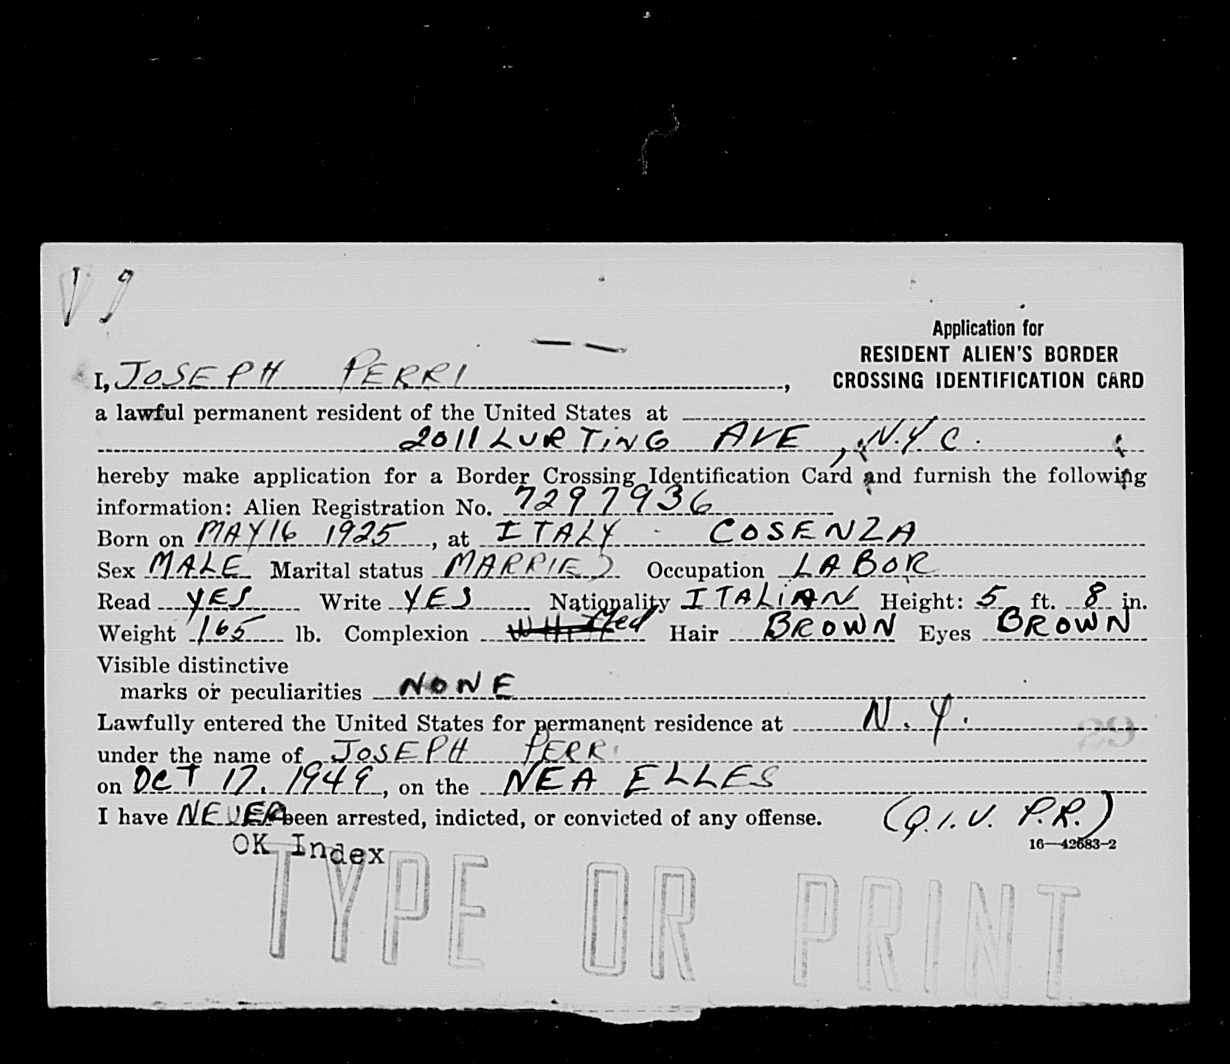 V 9
Application for
RESIDENT ALIEN'S BORDER
CROSSING IDENTIFICATION CARD
I, JOSEPH PERRI,
a lawful permanent resident of the United States at
2011 LURTING AVE, N.Y.C.
hereby make application for a Border Crossing Identification Card and furnish the following
information: Alien Registration No. 7297936
Born on MAY 16 1925, at ITALY - COSENZA
Sex MALE Marital status MARRIED Occupation LABOR
Read YES Write YES Nationality ITALIAN Height: 5 ft. 8 in.
Weight 165 lb. Complexion Med Hair BROWN Eyes BROWN
Visible distinctive
marks or peculiarities NONE
Lawfully entered the United States for permanent residence at N.Y.
29
under the name of JOSEPH PERRI
on OCT 17, 1949, on the NEA ELLES
I have NEVER been arrested, indicted, or convicted of any offense. (Q.I.V. P.R.)
16—42683-2
OK Index
TYPE OR PRINT